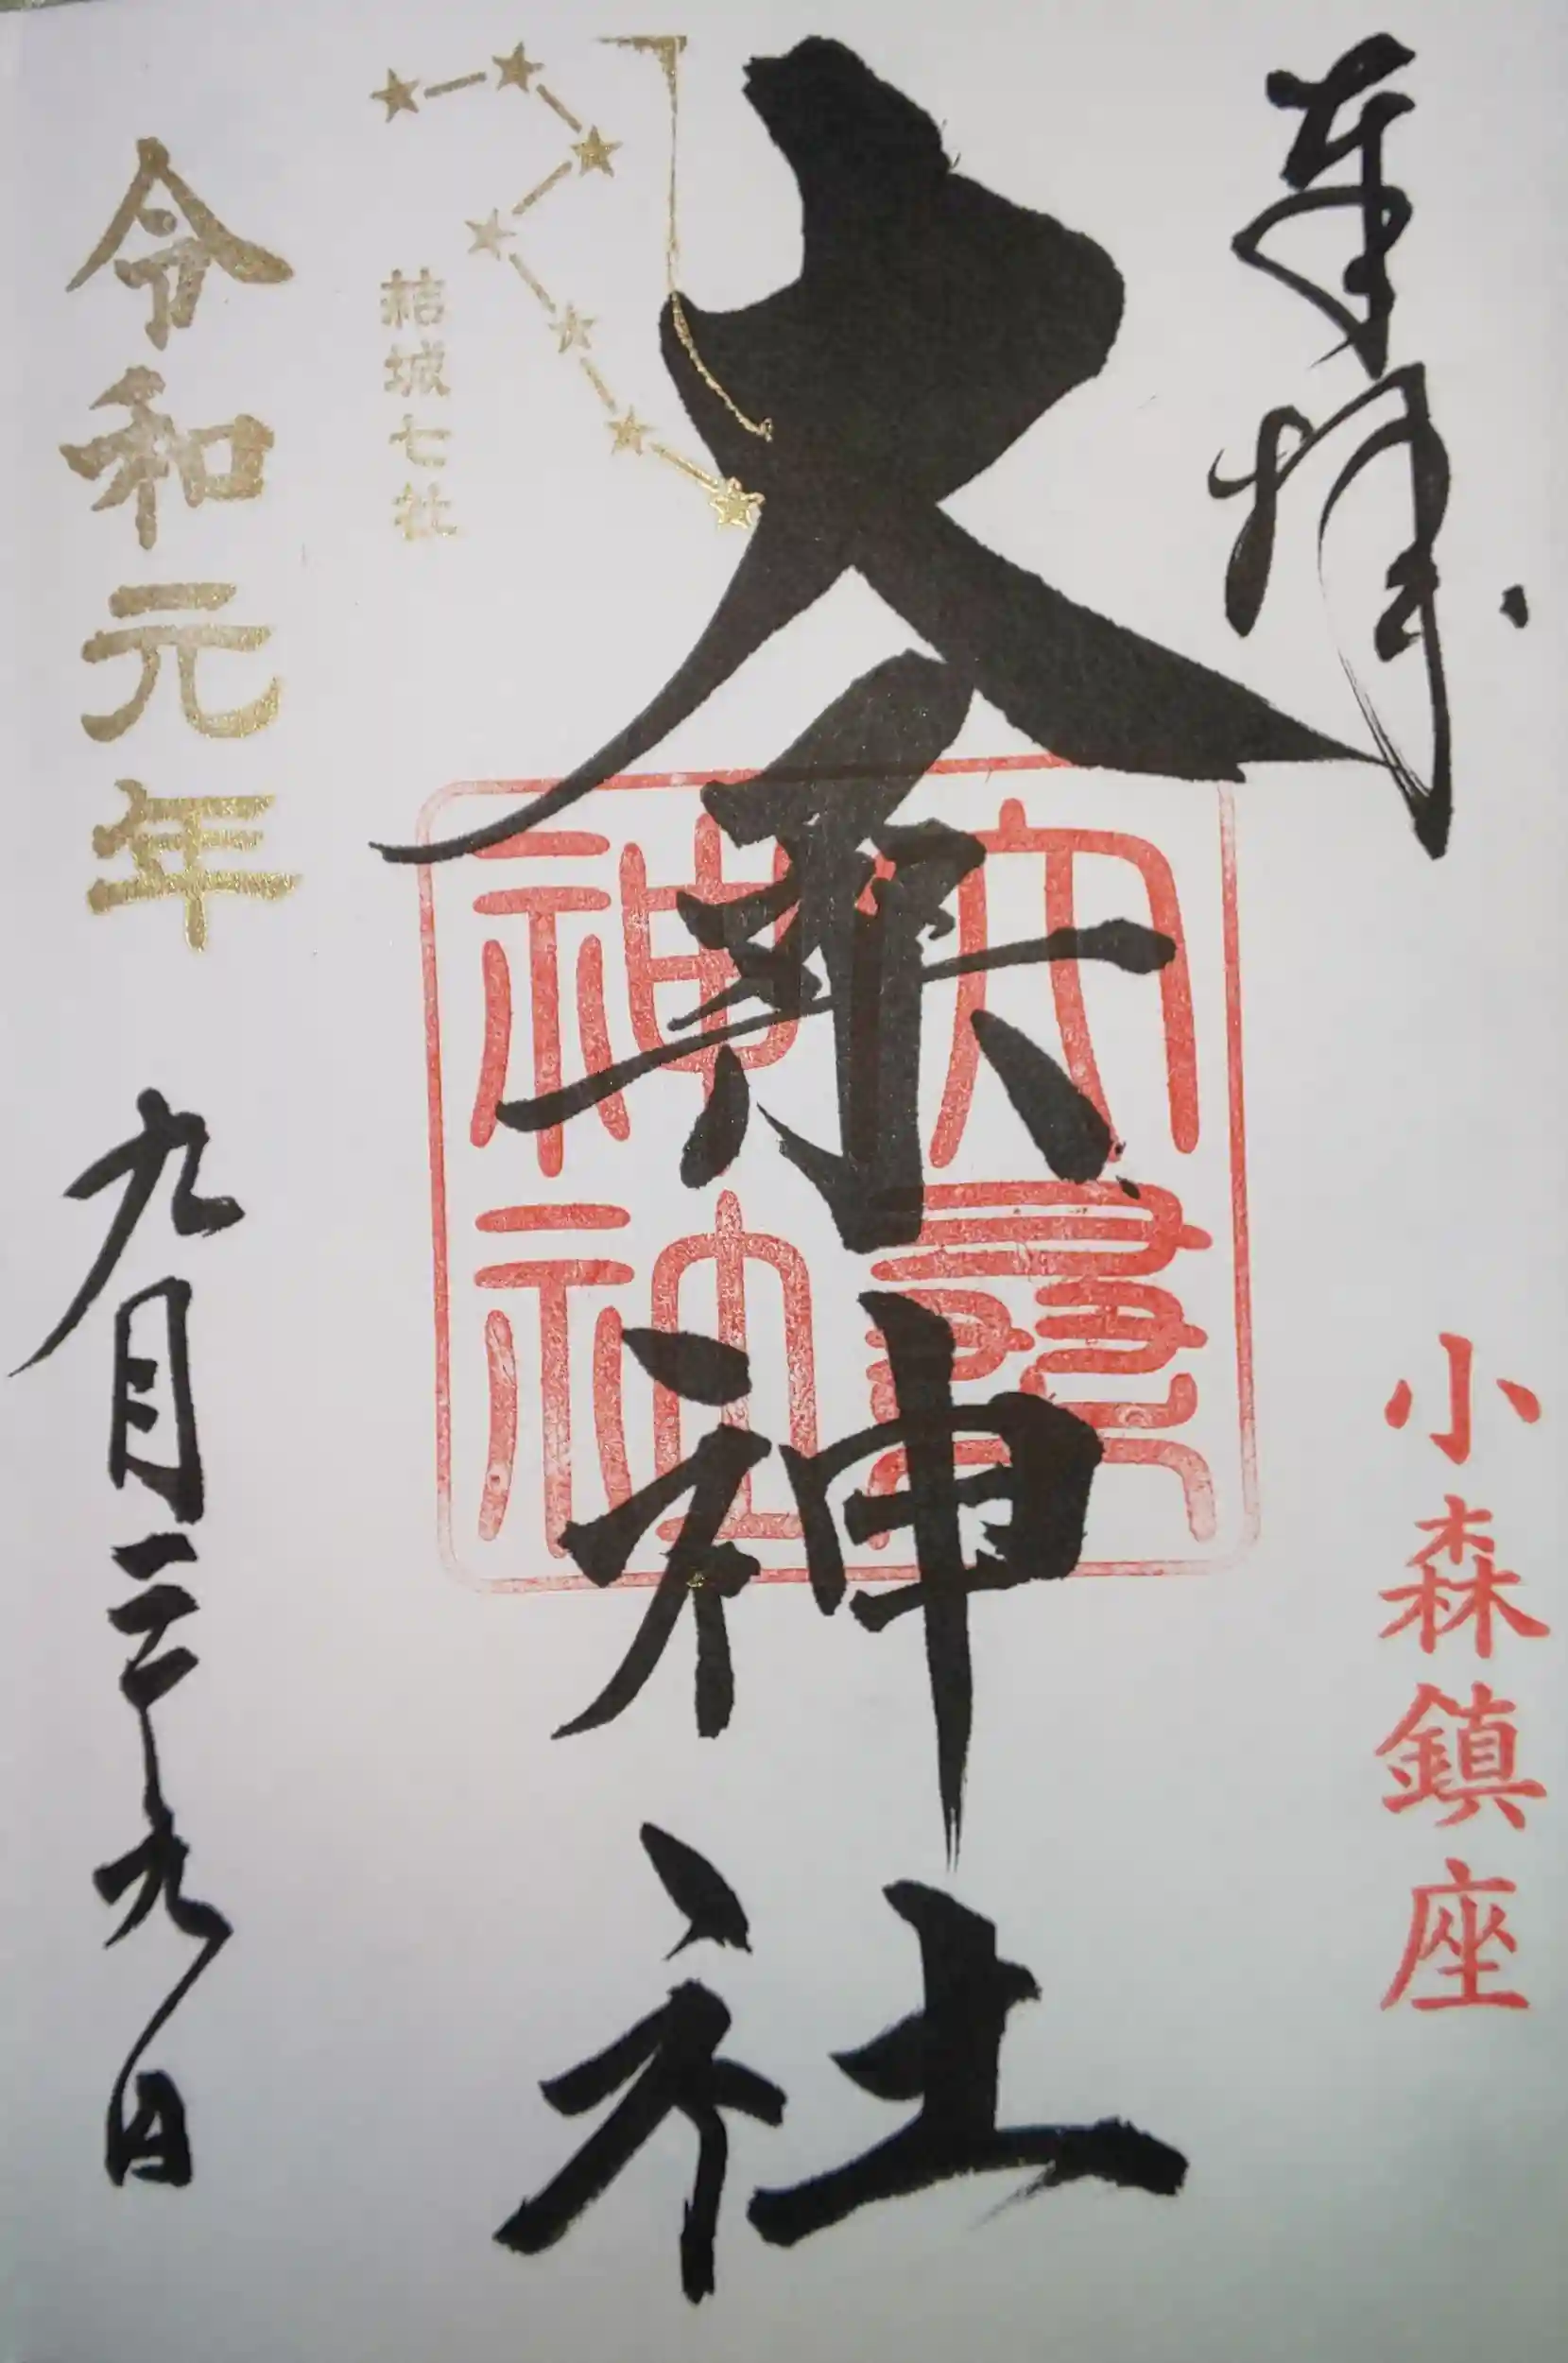 奉拝
小森鎮座
大桑神社
大桑
神社
結城七社
令和元年九月二十九日